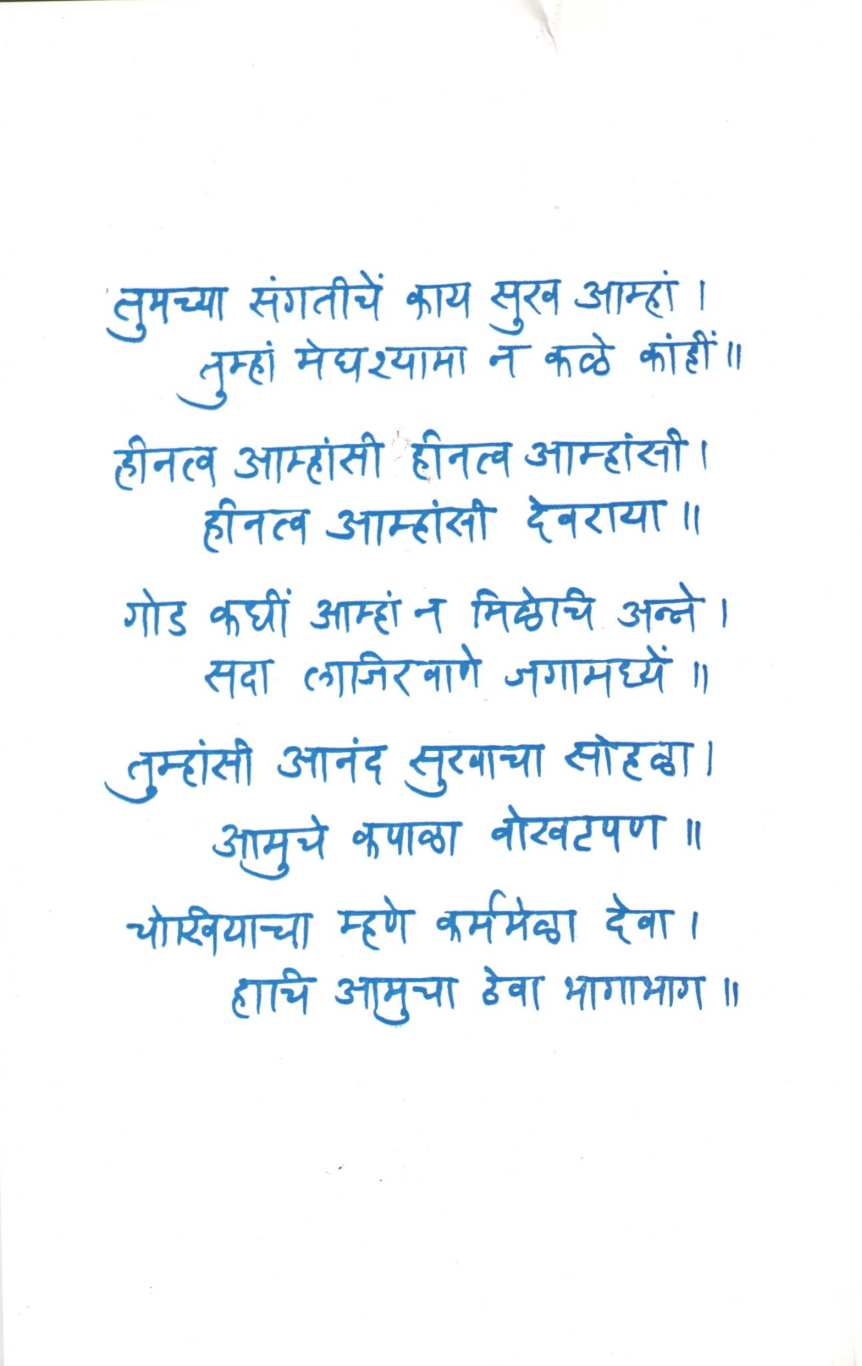 तुमच्या संगतीचें काय सुख आम्हां ।
तुम्हां मेघश्यामा न कळे कांहीं ॥
हीनत्व आम्हांसी हीनत्व आम्हांसी ।
हीनत्व आम्हांसी देवराया ॥
गोड कधीं आम्हां न मिळेचि अन्ने ।
सदा लाजिरवाणे जगामध्यें ॥
तुम्हांसी आनंद सुखाचा सोहळा ।
आमुचे कपाळा वोखटपण ॥
चोखियाचा म्हणे कर्ममेळा देवा ।
हाचि आमुचा ठेवा भागाभाग ॥